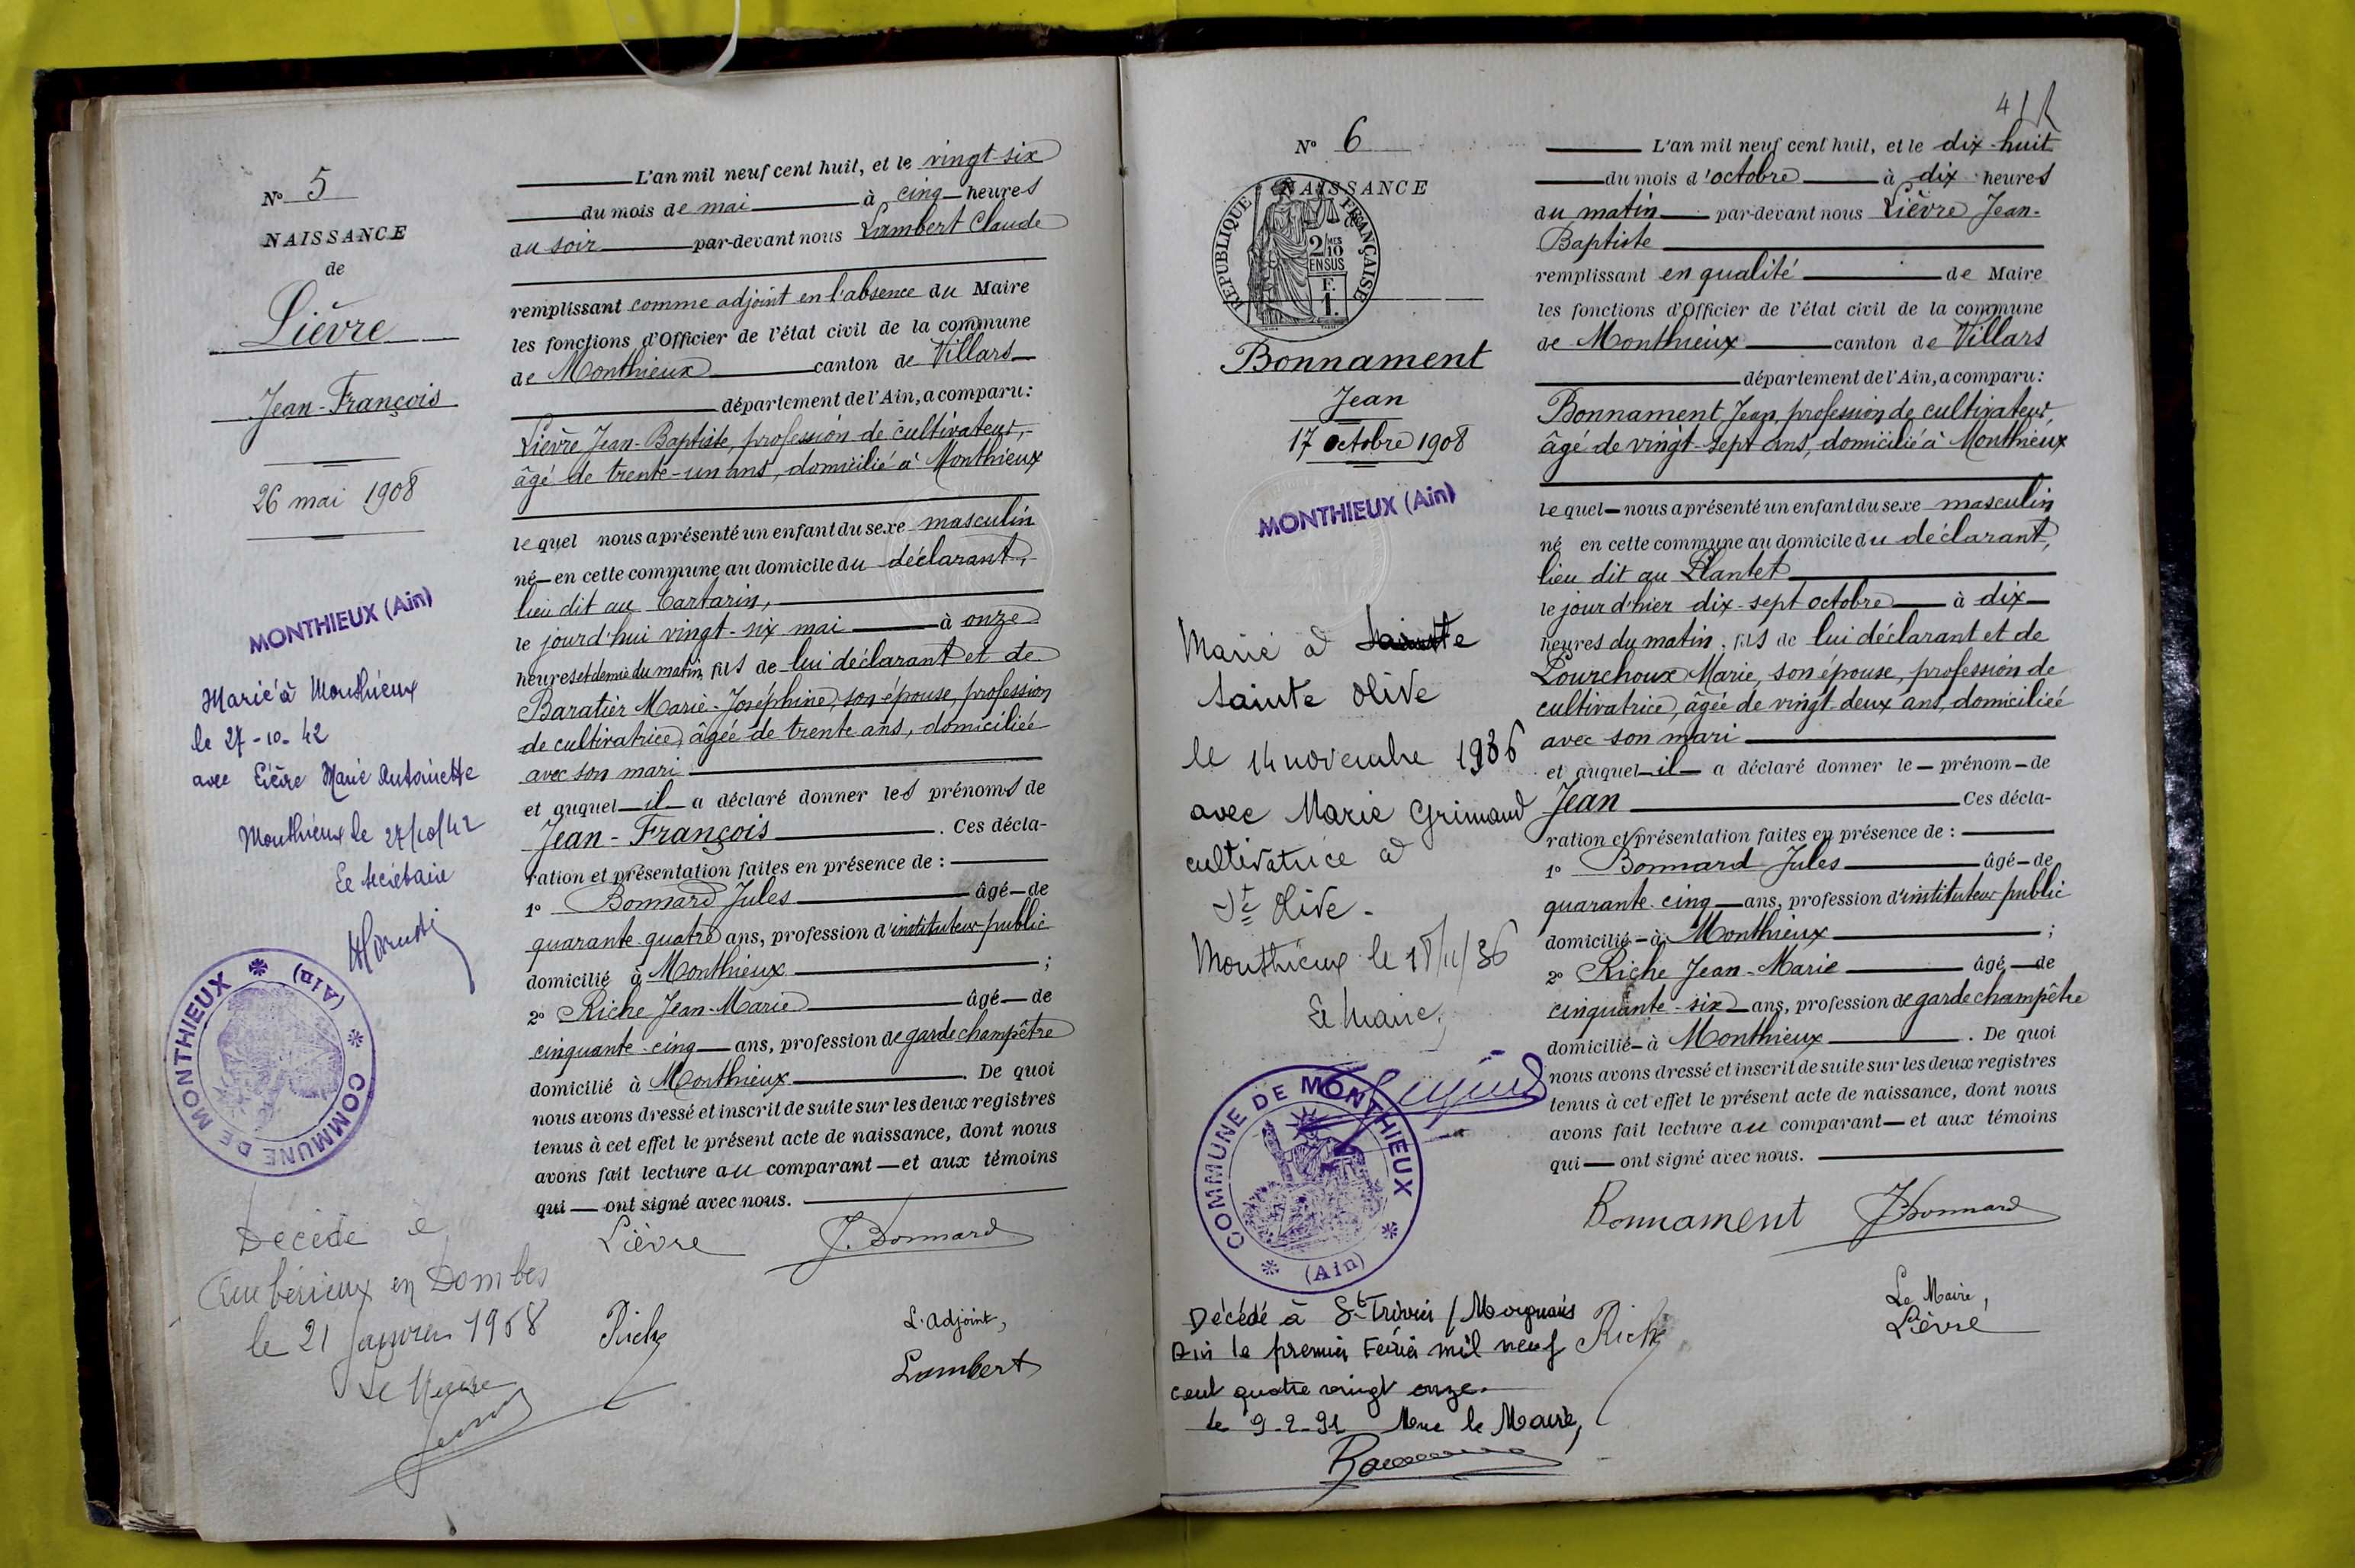 N° 5
NAISSANCE
de
Lièvre
Jean-François
26 mai 1908
MONTHIEUX (Ain)
Marié à Monthieux
le 27-10-42
avec Lièvre Marie Antoinette
Monthieux le 27/10/42
Le secrétaire
COMMUNE DE MONTHIEUX (Ain)
Décédé à
Ambérieux en Dombes
le 21 Janvier 1968
Le Maire
L'an mil neuf cent huit, et le vingt-six
du mois de mai à cinq heures
du soir par-devant nous Lambert Claude
remplissant comme adjoint en l'absence du Maire
les fonctions d'Officier de l'état civil de la commune
de Monthieux canton de Villars
département de l'Ain, a comparu :
Lièvre Jean-Baptiste, profession de cultivateur,
âgé de trente-un ans, domicilié à Monthieux
lequel nous a présenté un enfant du sexe masculin
né en cette commune au domicile du déclarant,
lieu dit au Cartarin,
le jourd'hui vingt-six mai à onze
heures et demie du matin, fils de lui déclarant et de
Baratier Marie-Joséphine, son épouse, profession
de cultivatrice, âgée de trente ans, domiciliée
avec son mari
et auquel il a déclaré donner les prénoms de
Jean-François. Ces décla-
ration et présentation faites en présence de :
1° Bonnard Jules âgé de
quarante-quatre ans, profession d'instituteur public
domicilié à Monthieux ;
2° Riche Jean-Marie âgé de
cinquante-cinq ans, profession de garde champêtre
domicilié à Monthieux. De quoi
nous avons dressé et inscrit de suite sur les deux registres
tenus à cet effet le présent acte de naissance, dont nous
avons fait lecture au comparant et aux témoins
qui ont signé avec nous.
Lièvre J. Bonnard
Riche L'adjoint,
Lambert
4
N° 6
NAISSANCE
RÉPUBLIQUE FRANÇAISE
2/10 MES
EN SUS
F.
1.
Bonnament
Jean
17 octobre 1908
MONTHIEUX (Ain)
Marié à
Sainte Olive
le 14 novembre 1936
avec Marie Grimaud
cultivatrice à
Ste Olive.
Monthieux le 18/11/36
Le Maire,
COMMUNE DE MONTHIEUX (Ain)
Décédé à St Trivier / Moignans
Ain le premier Février mil neuf
cent quatre vingt onze.
le 9-2-91 Mme le Maire,
L'an mil neuf cent huit, et le dix-huit
du mois d'octobre à dix heures
du matin par-devant nous Lièvre Jean-
Baptiste
remplissant en qualité de Maire
les fonctions d'Officier de l'état civil de la commune
de Monthieux canton de Villars
département de l'Ain, a comparu :
Bonnament Jean, profession de cultivateur,
âgé de vingt-sept ans, domicilié à Monthieux
lequel nous a présenté un enfant du sexe masculin
né en cette commune au domicile du déclarant,
lieu dit au Plantet
le jour d'hier dix-sept octobre à dix
heures du matin, fils de lui déclarant et de
Lourchoux Marie, son épouse, profession de
cultivatrice, âgée de vingt-deux ans, domiciliée
avec son mari
et auquel il a déclaré donner le prénom de
Jean Ces décla-
ration et présentation faites en présence de :
1° Bonnard Jules âgé de
quarante-cinq ans, profession d'instituteur public
domicilié à Monthieux ;
2° Riche Jean-Marie âgé de
cinquante-six ans, profession de garde champêtre
domicilié à Monthieux. De quoi
nous avons dressé et inscrit de suite sur les deux registres
tenus à cet effet le présent acte de naissance, dont nous
avons fait lecture au comparant et aux témoins
qui ont signé avec nous.
Bonnament J Bonnard
Riche Le Maire,
Lièvre